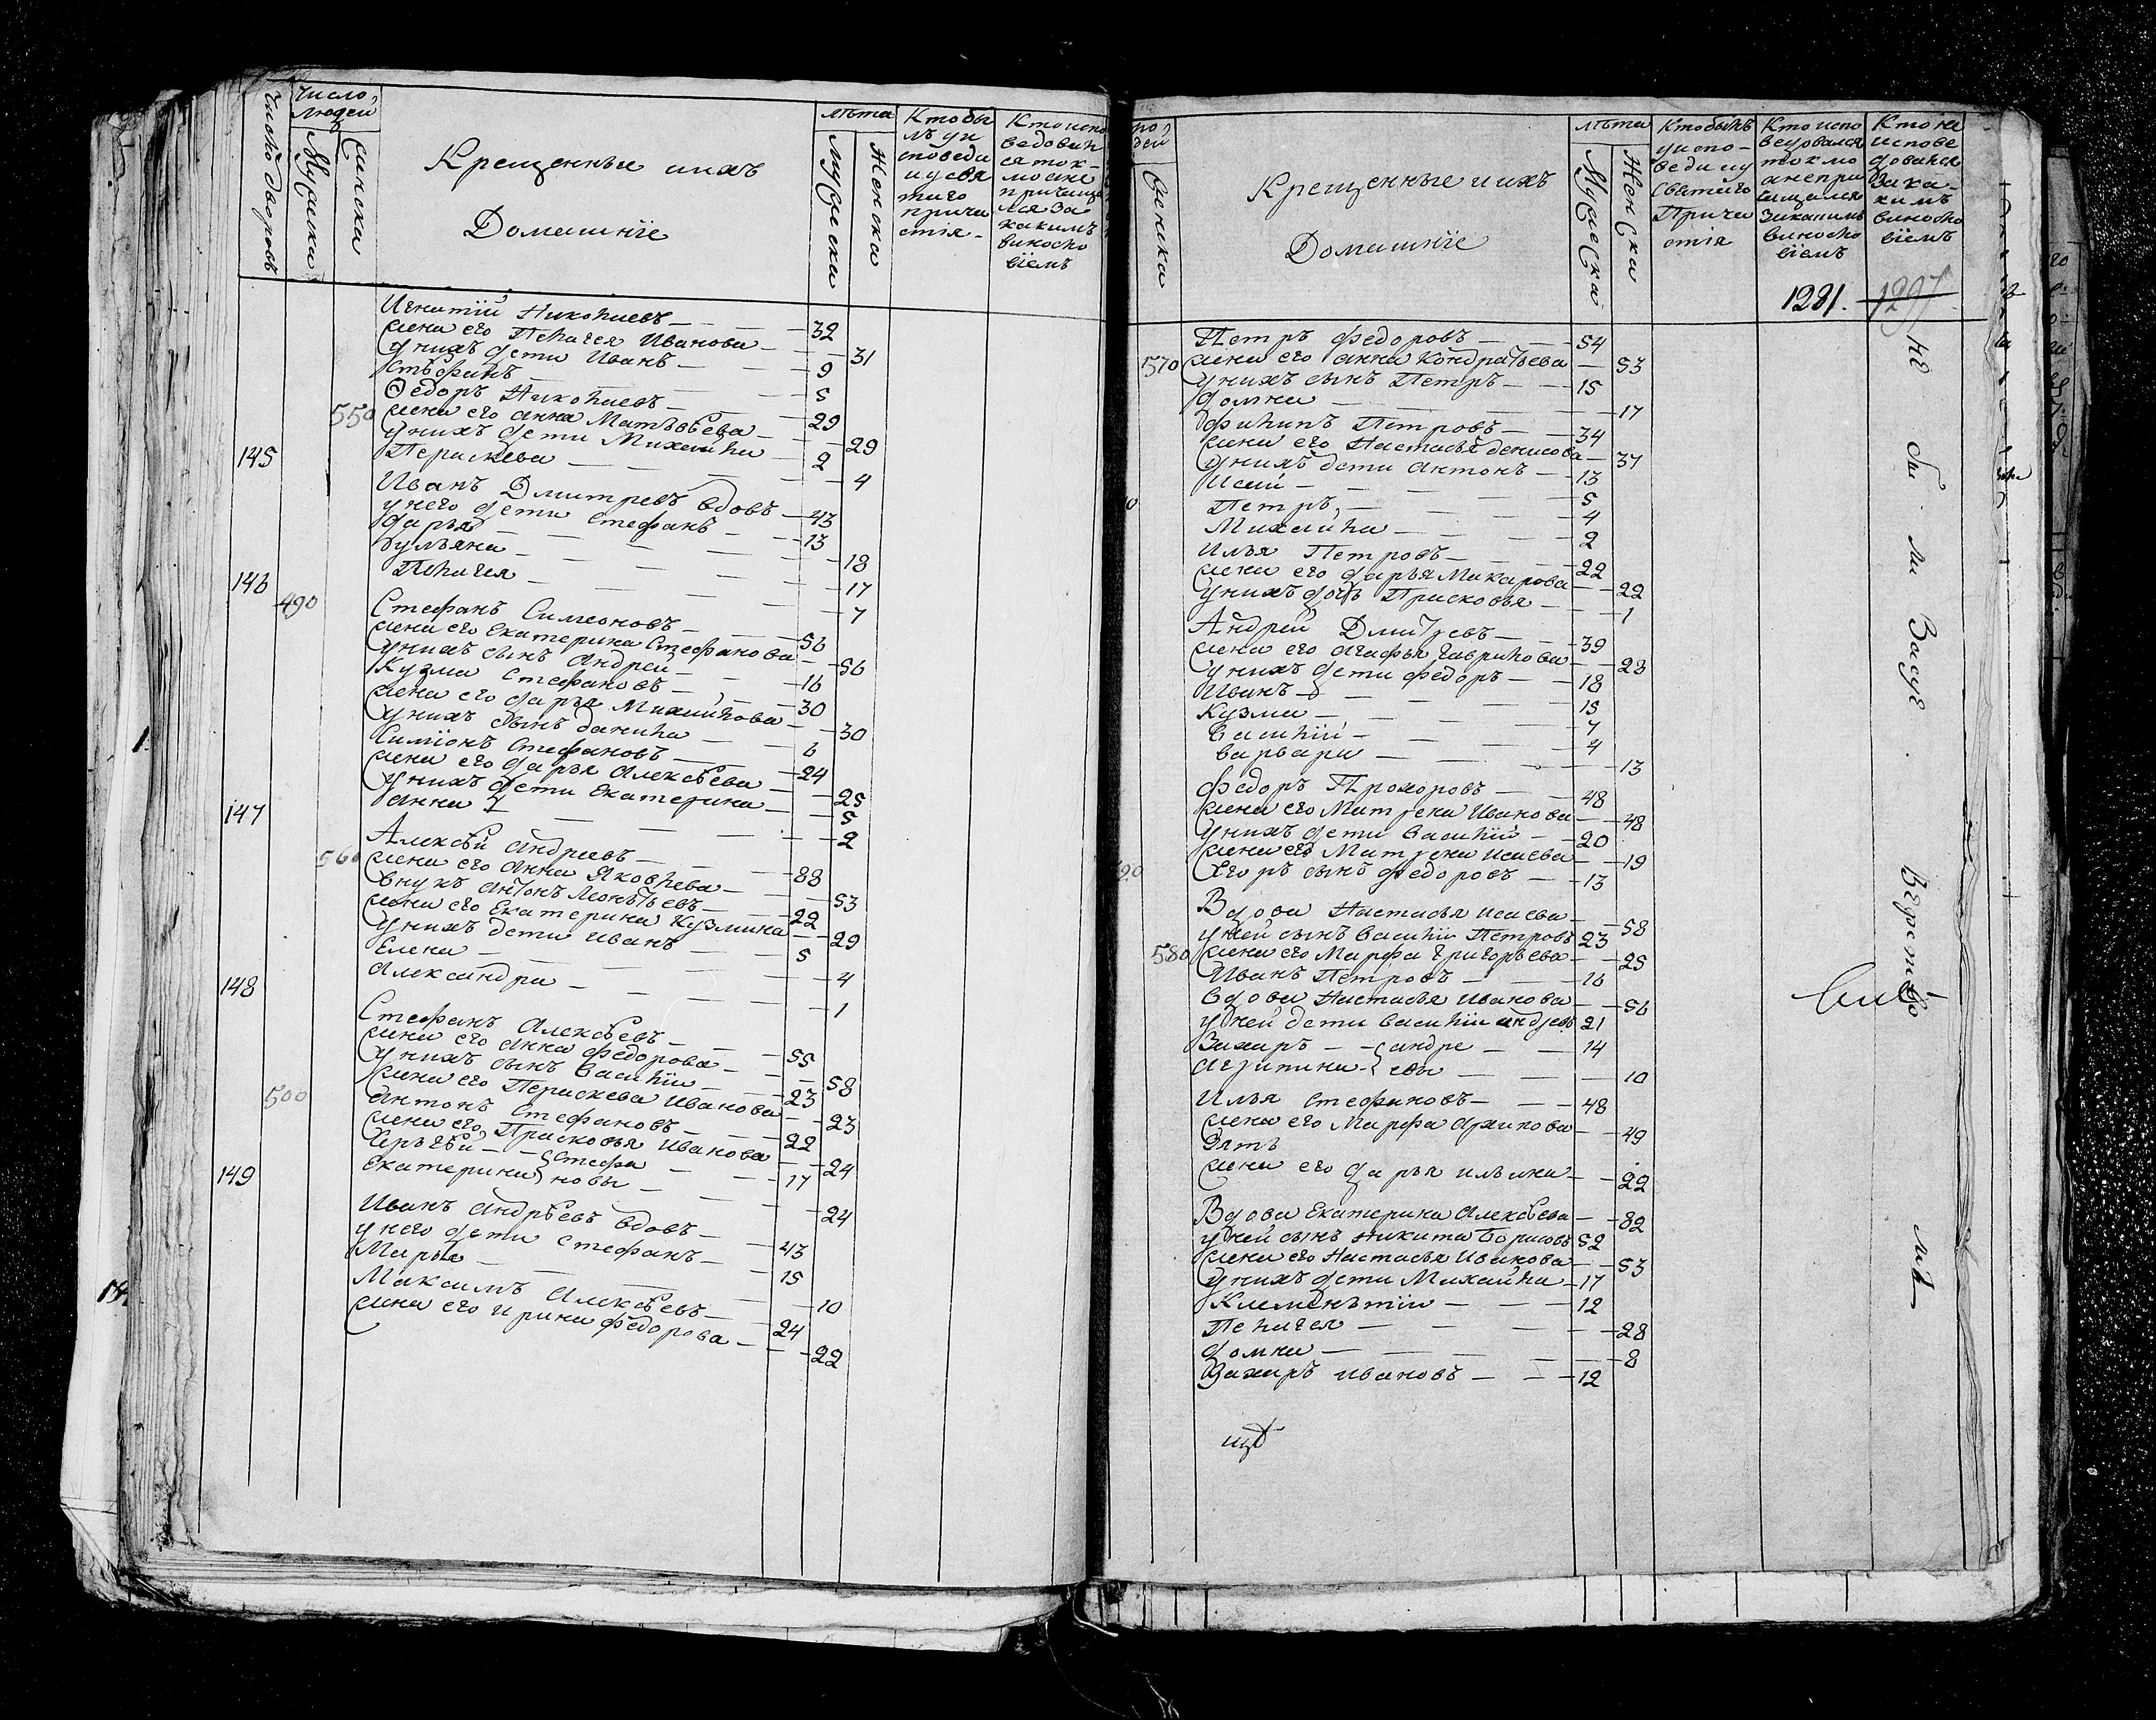 Число дворовъ
Число людей
Мужска
Женска
Крещенныя ихъ
Домашніе
Лѣта
Мужеска
Женска
Кто бы
лъ у и
споведи
и у свя
таго
прича
стія
Кто испо
ведовал
ся ток-
мо а не
причаща
лся за
какимъ
виносло
віемъ
Игнатій Николаевъ 32
жена его Пелагея Иванова 31
у нихъ дети Иванъ 9
Стефанъ 5
Ѳедоръ Николаевъ 29
550 жена его Анна Матвѣева 29
у нихъ дети Михаила 2
Параскева 4
145
Иванъ Дмитревъ вдовъ 43
у него дети Стефанъ 13
Дарья 18
Ульяна 17
Пелагея 7
146
490
Стефанъ Симеоновъ 56
жена его Екатерина Стефанова 56
у нихъ сынъ Андрей 16
Кузма Стефановъ 30
жена его Дарья Михайлова 30
у нихъ сынъ Данила 6
Симіонъ Стефановъ 24
жена его Дарья Алексѣева 25
у нихъ дети Екатерина 5
Анна 2
147
Алексѣй Андреевъ 88
560 жена его Анна Яковлева 53
внукъ Антонъ Леонтьевъ 22
жена его Екатерина Кузмина 29
у нихъ дети Иванъ 5
Елена 4
Александра 1
148
Стефанъ Алексѣевъ 55
жена его Анна Федорова 58
у нихъ сынъ Василіи 23
жена его Параскева Иванова 23
500
Антонъ Стефановъ 22
жена его Прасковья Иванова 24
Сергѣй Стефа 17
Екатерина новы 24
149
Иванъ Андрѣевъ вдовъ 43
у него дети Стефанъ 15
Марья 10
Максимъ Алексѣевъ 24
жена его Ирина Федорова 22
Женска
Крещенные ихъ
Домашніе
Лѣта
Мужеска
Женска
Кто былъ
у испо-
веди и у
Святаго
Прича
стія
Кто испо
ведовался
токмо
а не при
чащался
за какимъ
виносло
віемъ
Кто не
испове
довался
за ка-
кимъ
виносло
віемъ
1281. 1297
Петръ Федоровъ 54
570 жена его Анна Кондратьева 53
у нихъ сынъ Петръ 15
Домна 17
Филипъ Петровъ 34
жена его Настасья Денисова 37
у нихъ дети Антонъ 13
Исай 5
Петръ 4
Михаила 2
Илья Петровъ 22
жена его Дарья Макарова 22
у нихъ дочь Прасковья 1
Андрей Дмитревъ 39
жена его Агафья Гаврилова 28
у нихъ дети Федоръ 18
Иванъ 15
Кузма 7
Василій 4
Варвара 13
Федоръ Прохоровъ 48
жена его Матрена Иванова 48
у нихъ дети Василій 20
жена его Матрена Исаева 19
Егоръ сынъ Федоровъ 13
Вдова Настасья Исаева 58
у ней сынъ Василіи Петровъ 23
580 жена его Марфа Григорьева 25
Иванъ Петровъ 16
вдова Настасья Иванова 56
у ней дети Василіи Андреевъ 21
Захаръ андре 14
Агрипина евы 10
Илья Стефановъ 48
жена его Марфа Архипова 49
Зять
жена его Дарья Ильина 22
Вдова Екатерина Алексѣева 82
у ней сынъ Никита Борисовъ 52
жена его Настасья Иванова 53
у нихъ дети Михайла 17
Климентіи 12
Пелагея 28
Домна 8
Захаръ Ивановъ 12